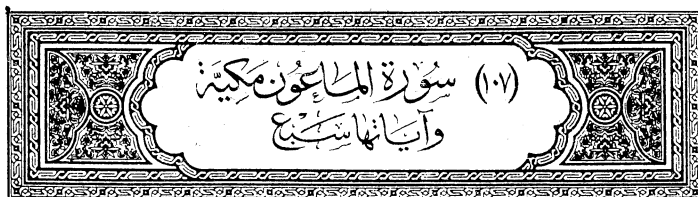 (١٠٧) سُورَة المَاعُون مَكِيَّة
وآياتها سَبْع